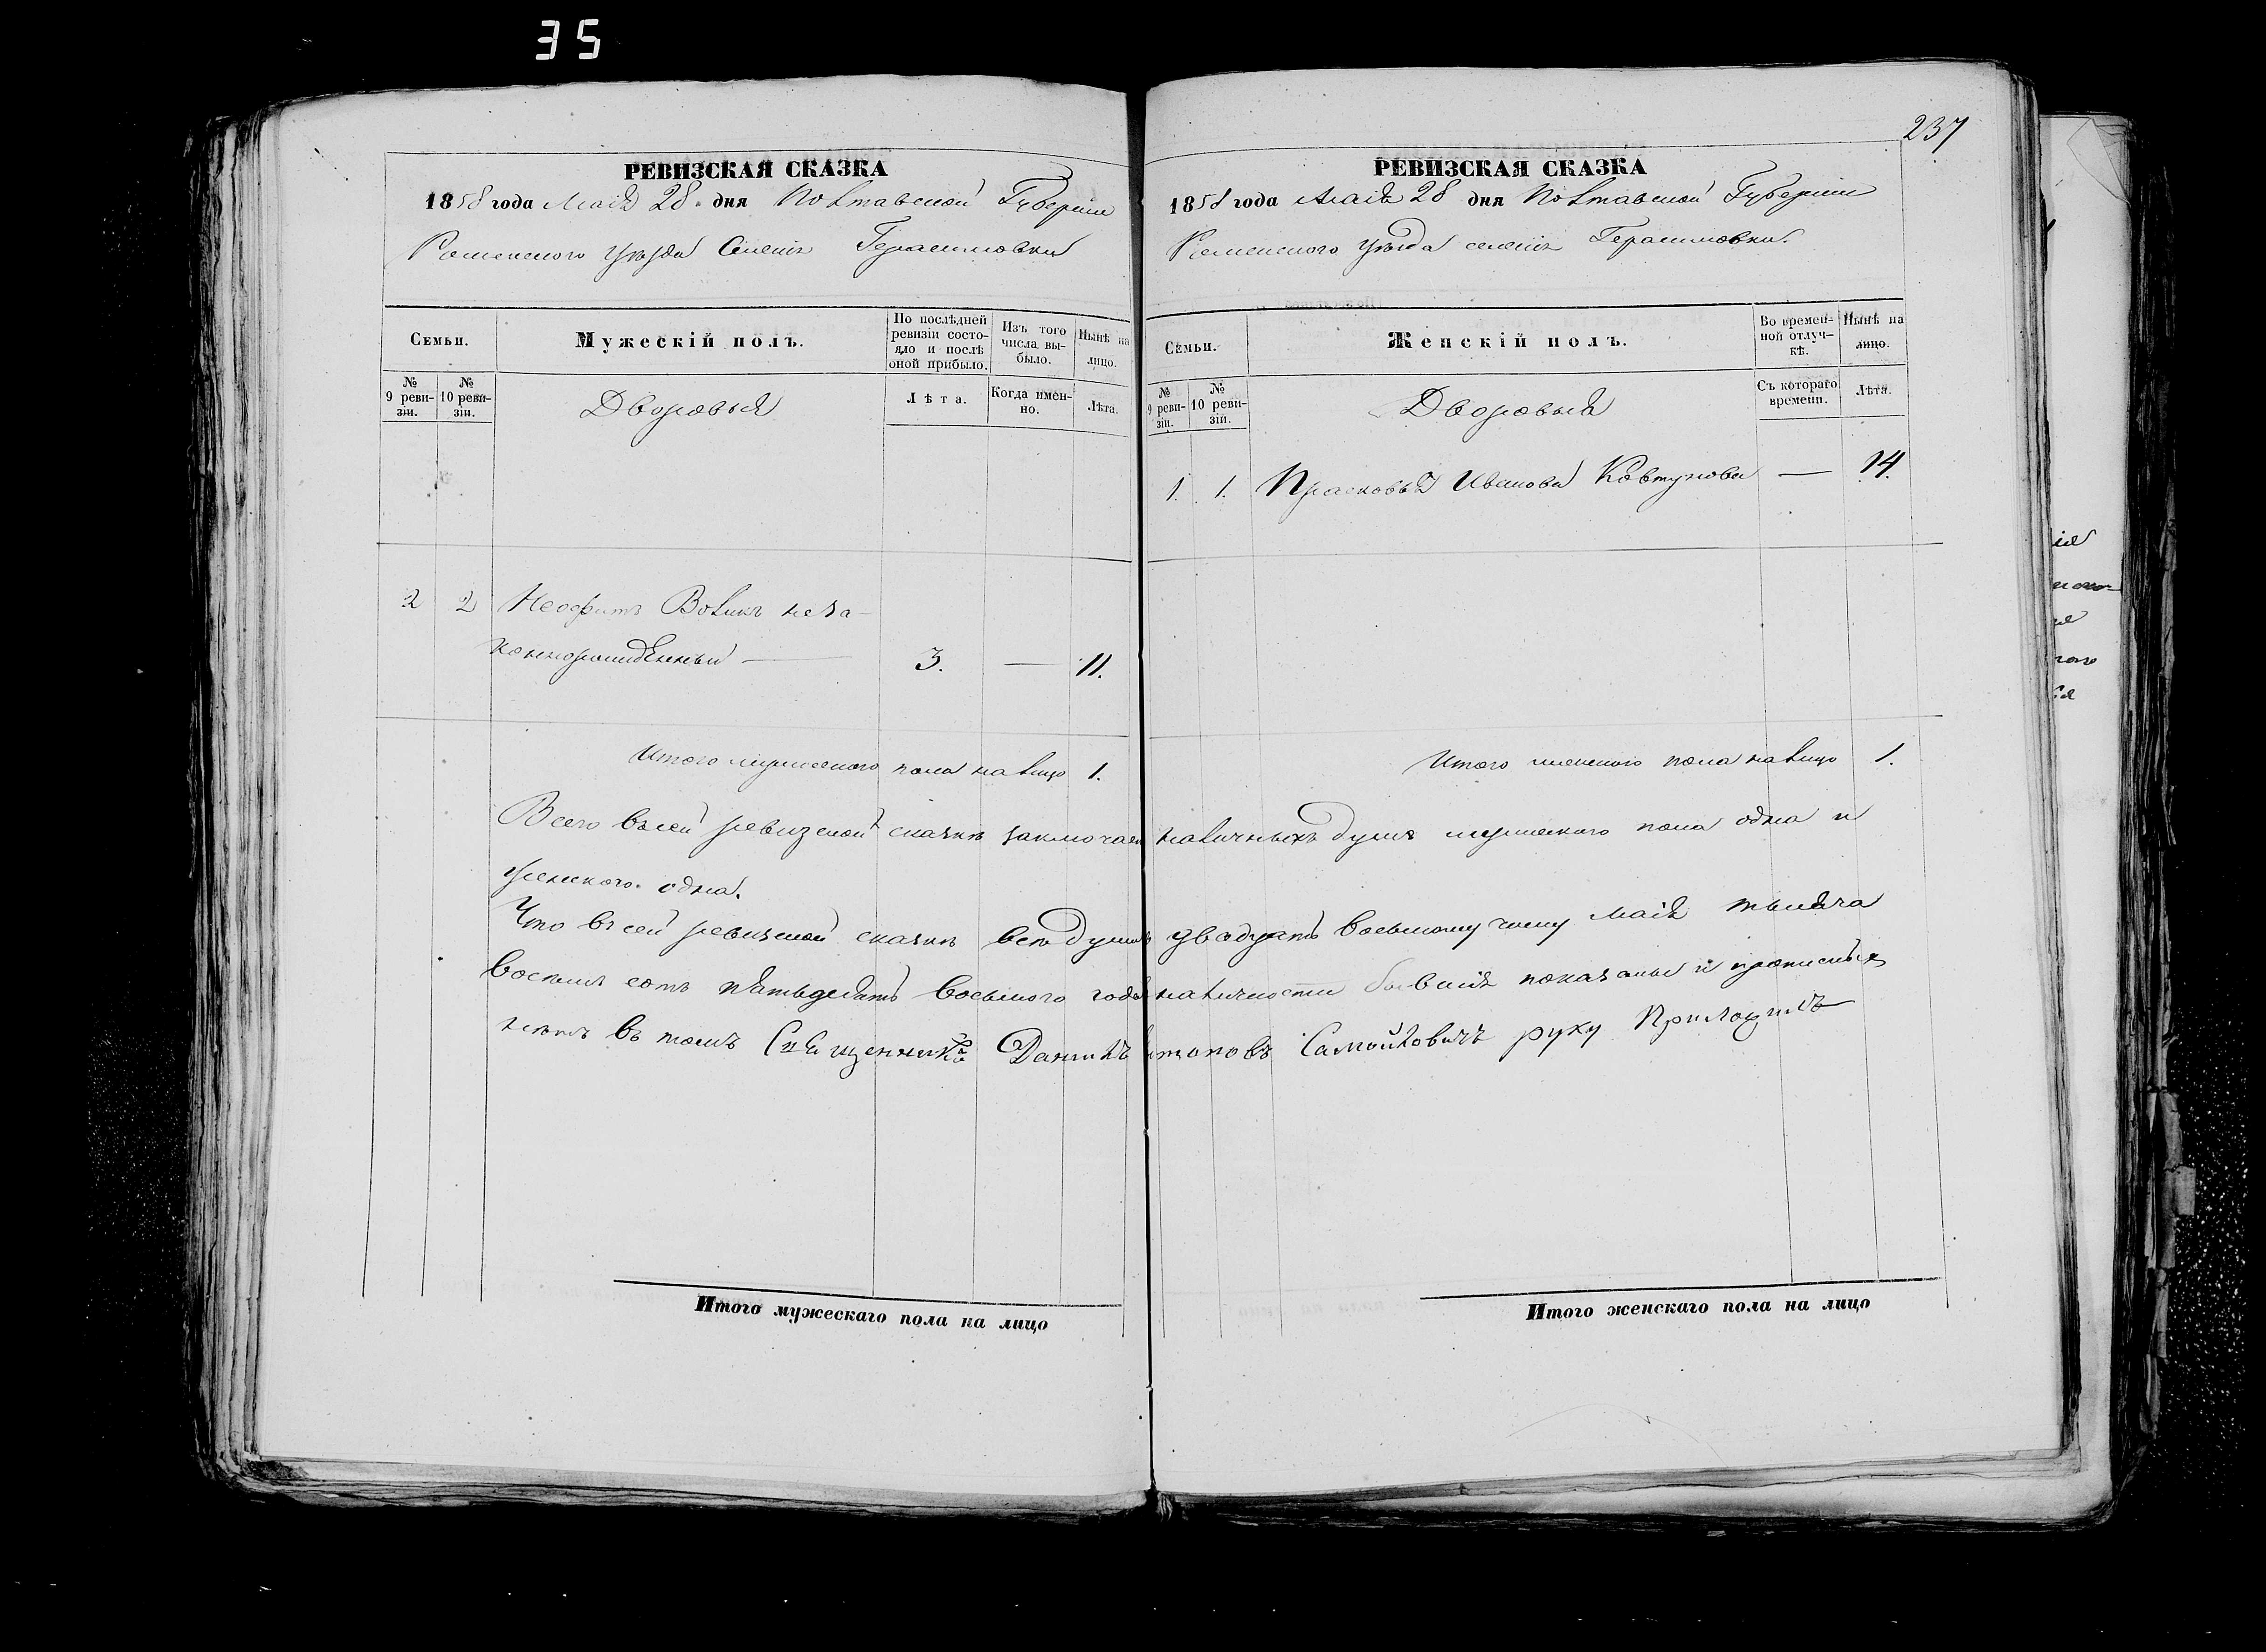 35
237
РЕВИЗСКАЯ СКАЗКА
1858 года Маія 28 дня Полтавской Губерніи
Роменского Уѣзда Селенія Герасимовки
Семьи.
Мужескій полъ.
По послѣдней ревизіи состояло и послѣ оной прибыло.
Изъ того числа выбыло.
Нынѣ на лицо.
№ 9 ревизіи.
№ 10 ревизіи.
Дворовыя
Лѣта.
Когда именно.
Лѣта.
2 2 Неофитъ Воликъ неза-
коннорожденный — 3. — 11.
Итого мужеского пола на лицо 1.
РЕВИЗСКАЯ СКАЗКА
1858 года Маія 28 дня Полтавской Губерніи
Роменского уѣзда селенія Герасимовки.
Семьи.
Женскій полъ.
Во временной отлучкѣ.
Нынѣ на лицо.
№ 9 ревизіи.
№ 10 ревизіи.
Дворовыя
Съ котораго времени.
Лѣта.
1. 1. Прасковья Иванова Ковтунова — 14.
Итого женского пола на лицо 1.
Всего въ сей ревизской сказкѣ заключает наличныхъ душъ мужеского пола одна и
женского одна.
Что въ сей ревизской сказкѣ всѣ души двадцать восьмому числу Маія тысяча
восемь сотъ пятьдесятъ восьмого года наличности бывшія показаны и прописныхъ
нѣтъ въ томъ Священникъ Данилъ Самойловичъ руку Приложилъ
Итого мужескаго пола на лицо
Итого женскаго пола на лицо